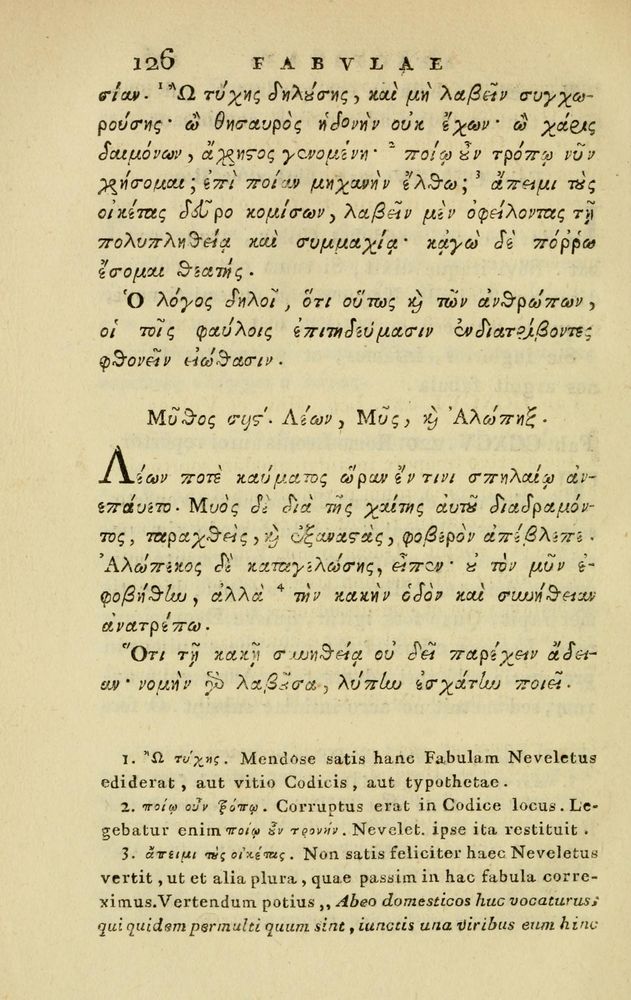 126 FABVLAE
σίαν. ¹ Ὢ τύχης δηλούσης, καὶ μὴ λαβεῖν συγχω-
ρούσης· ὢ θησαυρὸς ἡδονὴν οὐκ ἔχων· ὢ χάρις
δαιμόνων, ἄχρηστος γενομένη· ² ποίῳ οὖν τρόπῳ νῦν
χρήσομαι; ἐπὶ ποίαν μηχανὴν ἔλθω; ³ ἄπειμι τοὺς
οἰκέτας δεῦρο κομίσων, λαβεῖν μὲν ὀφείλοντας τῇ
πολυπληθείᾳ καὶ συμμαχίᾳ· κᾀγὼ δὲ πόῤῥω
ἔσομαι θεατής.
Ὁ λόγος δηλοῖ, ὅτι οὕτως καὶ τῶν ἀνθρώπων,
οἱ τοῖς φαύλοις ἐπιτηδεύμασιν ἐνδιατρίβοντες
φθονεῖν εἰώθασιν.
Μῦθος σις΄. Λέων, Μῦς, καὶ Ἀλώπηξ.
Λέων ποτὲ καύματος ὥραν ἔν τινι σπηλαίῳ ἀν-
επάυετο. Μυὸς δὲ διὰ τῆς χαίτης αὐτοῦ διαδραμόν-
τος, ταραχθεὶς, καὶ ἐξαναστὰς, φοβερὸν ἀπέβλεπε.
Ἀλώπεκος δὲ καταγελώσης, εἶπεν· οὐ τὸν μῦν ἐ-
φοβήθην, ἀλλὰ ⁴ τὴν κακὴν ὁδὸν καὶ συνήθειαν
ἀνατρέπω.
Ὅτι τῇ κακῇ συνηθείᾳ οὐ δεῖ παρέχειν ἄδει-
αν· νομὴν γὰρ λαβοῦσα, λύπην ἐσχάτην ποιεῖ.
1. Ὢ τύχης. Mendose satis hanc Fabulam Neveletus
ediderat, aut vitio Codicis, aut typothetae.
2. ποίῳ οὖν τρόπῳ. Corruptus erat in Codice locus. Le-
gebatur enim ποίῳ οὖν τρονήν. Nevelet. ipse ita restituit.
3. ἄπειμι τοὺς οἰκέτας. Non satis feliciter haec Neveletus
vertit, ut et alia plura, quae passim in hac fabula corre-
ximus. Vertendum potius ,, Abeo domesticos huc vocaturus;
qui quidem permulti quum sint, iunctis una viribus eum hinc